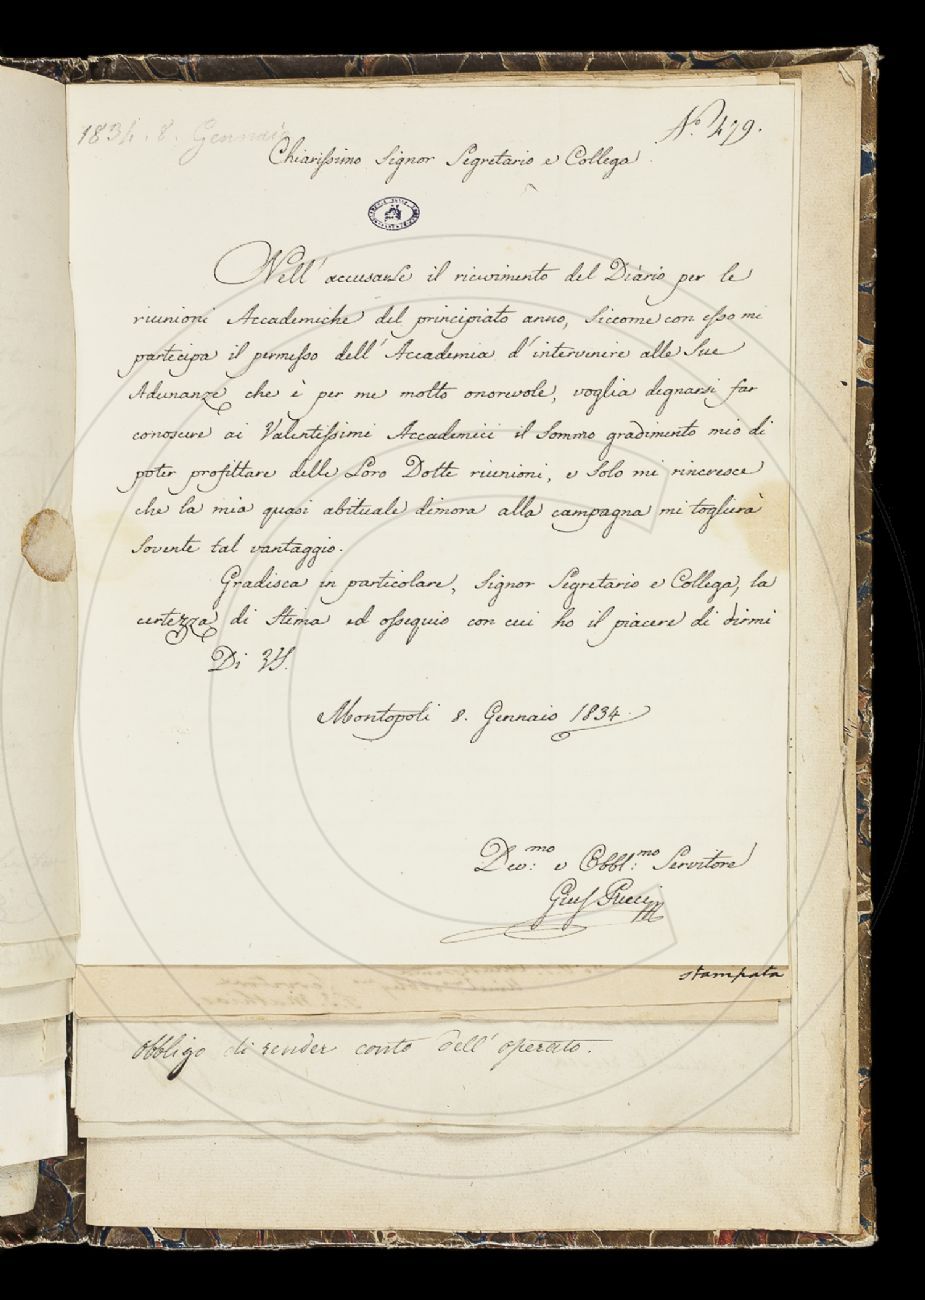 1834. 8. Gennaio
N.º 479.
Chiarissimo Signor Segretario e Collega.
Nell' accusarle il ricevimento del Diàrio per le
riunioni Accademiche del principiato anno, siccome con esso mi
participa il permesso dell' Accademia d' intervenire alle Sue
Adunanze che è per me molto onorevole, voglia degnarsi far
conoscere ai Valentissimi Accademici il Sommo gradimento mio di
poter profittare delle Loro Dotte riunioni, e Solo mi rincresce
che la mia quasi abituale dimora alla campagna mi toglierà
Sovente tal vantaggio.
Gradisca in particolare, Signor Segretario e Collega, la
certezza di Stima ed ossequio con cui ho il piacere di dirmi
Di VS.
Montopoli 8. Gennaio 1834.
Dev:mo e Obbl:mo Servitore
Gius Pucci
stampata
obbligo di render conto dell' operato.